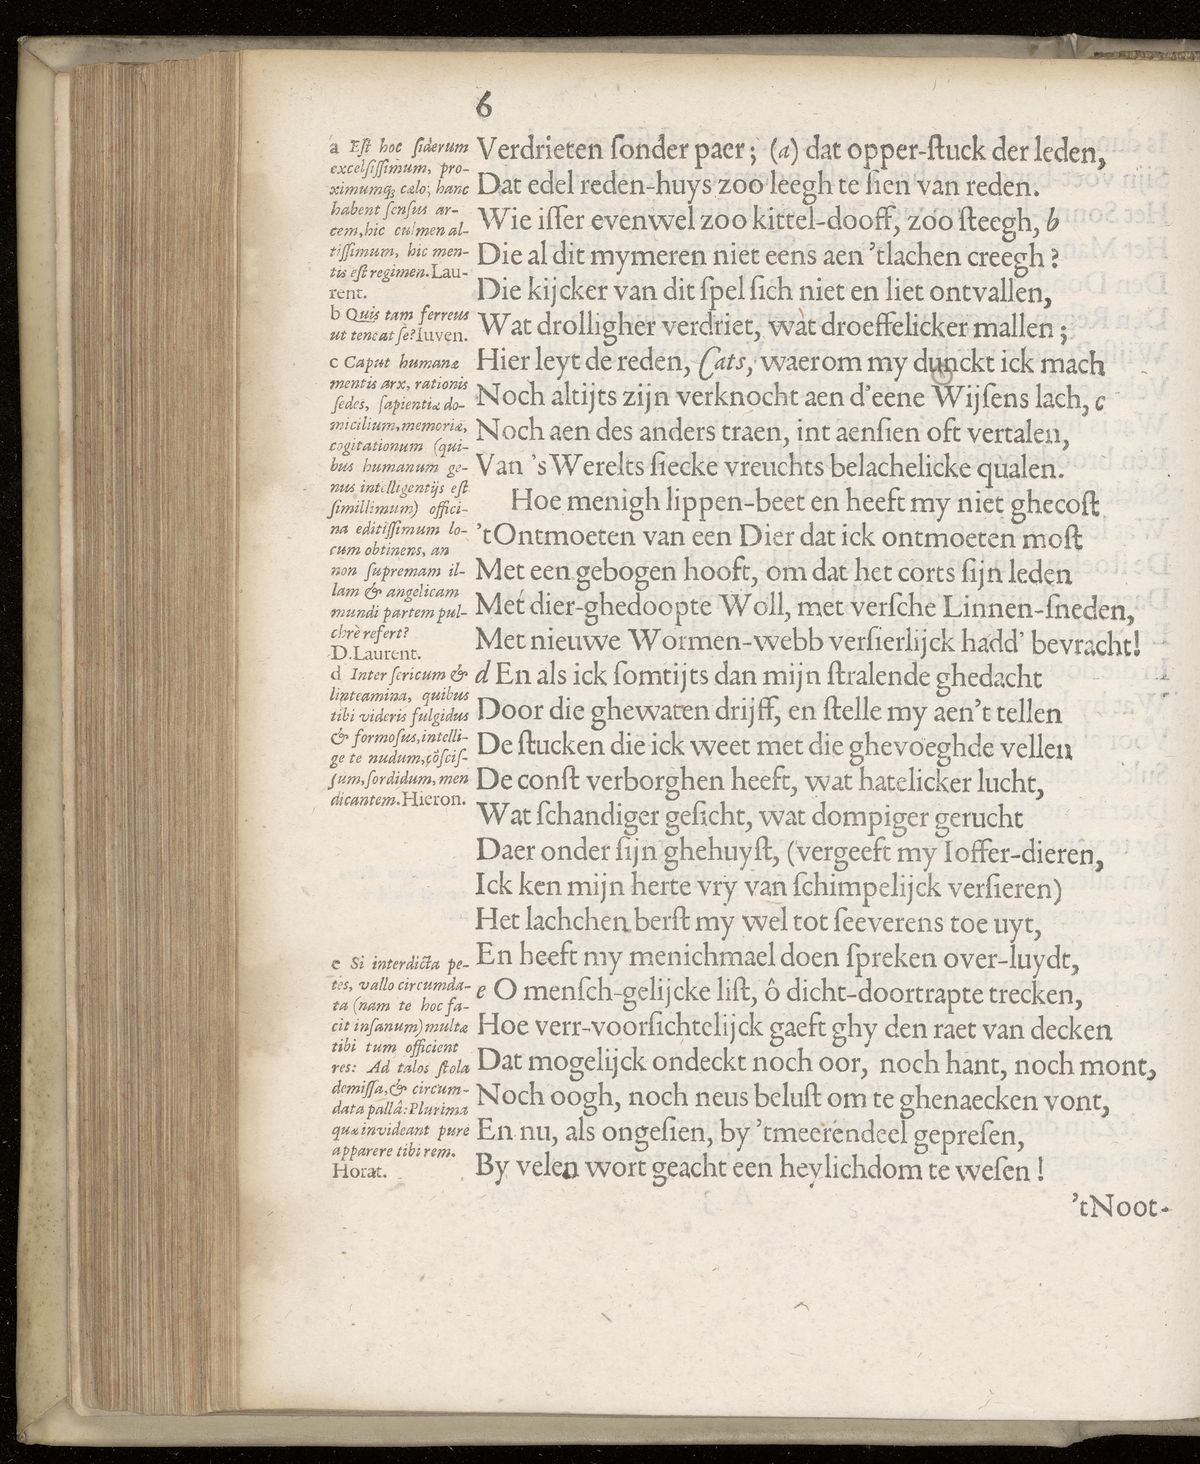 6
a Eſt hoc ſiderum
excelſiſſimum, pro-
ximumq; cælo; hanc
habent ſenſus ar-
cem, hic culmen al-
tiſſimum, hic men-
tis eſt regimen. Lau-
rent.
b Quis tam ferreus
ut teneat ſe? Iuven.
c Caput humanæ
mentis arx, rationis
ſedes, ſapientiæ do-
micilium, memoriæ,
cogitationum (qui-
bus humanum ge-
nus intelligentijs eſt
ſimillimum) offici-
na editiſſimum lo-
cum obtinens, an
non ſupremam il-
lam & angelicam
mundi partem pul-
chrè refert?
D. Laurent.
d Inter ſericum &
linteamina, quibus
tibi videris fulgidus
& formoſus, intelli-
ge te nudum, cõſciſ-
ſum, ſordidum, men
dicantem. Hieron.
e Si interdicta pe-
tes, vallo circumda-
ta (nam te hoc fa-
cit inſanum) multæ
tibi tum officient
res: Ad talos ſtola
demiſſa, & circum-
data pallâ: Plurima
quæ invideant pure
apparere tibi rem.
Horat.
Verdrieten ſonder paer; (a) dat opper-ſtuck der leden,
Dat edel reden-huys zoo leegh te ſien van reden.
Wie iſſer evenwel zoo kittel-dooff, zoo ſteegh, b
Die al dit mymeren niet eens aen ’tlachen creegh?
Die kijcker van dit ſpel ſich niet en liet ontvallen,
Wat drolligher verdriet, wat droeffelicker mallen;
Hier leyt de reden, Cats, waerom my dunckt ick mach
Noch altijts zijn verknocht aen d’eene Wijſens lach, c
Noch aen des anders traen, int aenſien oft vertalen,
Van ’s Werelts ſiecke vreuchts belachelicke qualen.
Hoe menigh lippen-beet en heeft my niet ghecoſt
’t Ontmoeten van een Dier dat ick ontmoeten moſt
Met een gebogen hooft, om dat het corts ſijn leden
Met dier-ghedoopte Woll, met verſche Linnen-ſneden,
Met nieuwe Wormen-webb verſierlijck hadd’ bevracht!
d En als ick ſomtijts dan mijn ſtralende ghedacht
Door die ghewaten drijff, en ſtelle my aen’t tellen
De ſtucken die ick weet met die ghevoeghde vellen
De conſt verborghen heeft, wat hatelicker lucht,
Wat ſchandiger geſicht, wat dompiger gerucht
Daer onder ſijn ghehuyſt, (vergeeft my Ioffer-dieren,
Ick ken mijn herte vry van ſchimpelijck verſieren)
Het lachchen berſt my wel tot ſeeverens toe uyt,
En heeft my menichmael doen ſpreken over-luydt,
e O menſch-gelijcke liſt, ô dicht-doortrapte trecken,
Hoe verr-voorſichtelijck gaeft ghy den raet van decken
Dat mogelijck ondeckt noch oor, noch hant, noch mont,
Noch oogh, noch neus beluſt om te ghenaecken vont,
En nu, als ongeſien, by ’tmeerendeel gepreſen,
By velen wort geacht een heylichdom te weſen!
’tNoot-